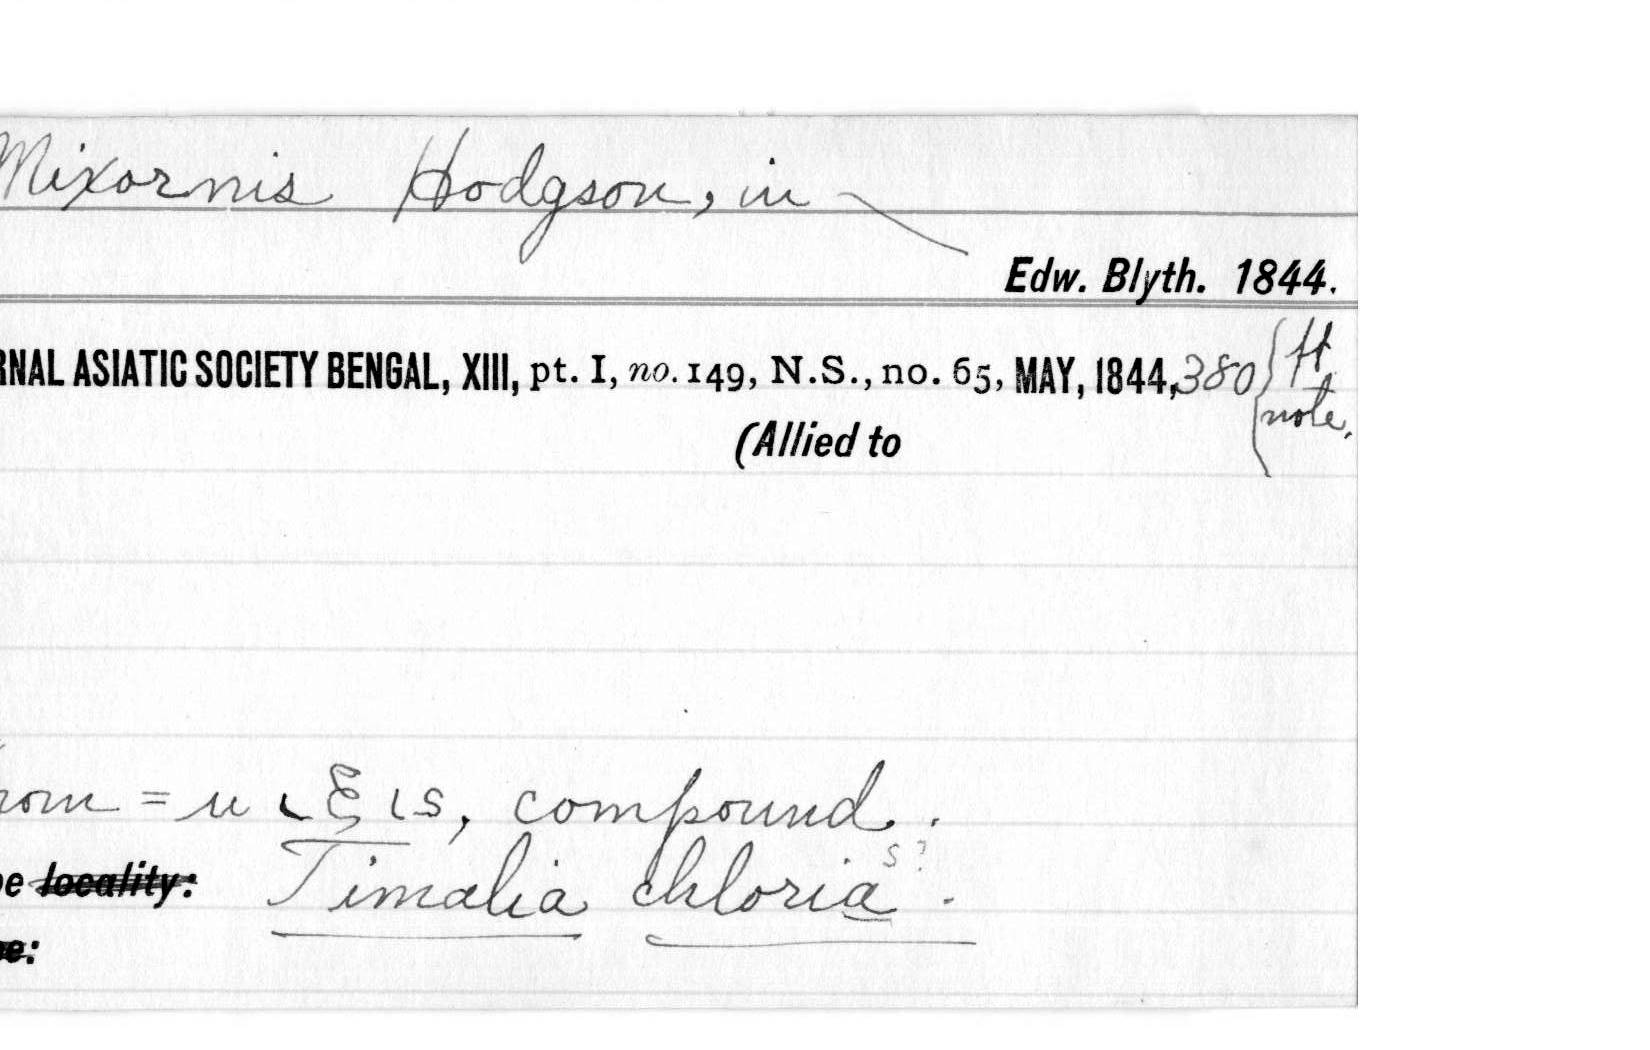 Mixornis Hodgson, in
Edw. Blyth. 1844.
RNAL ASIATIC SOCIETY BENGAL, XIII, pt. I, no. 149, N.S., no. 65, MAY, 1844, 380 { ft.
note.
(Allied to
rom = μιξις, compound.
s?
pe locality: Timalia chloria.
pe: